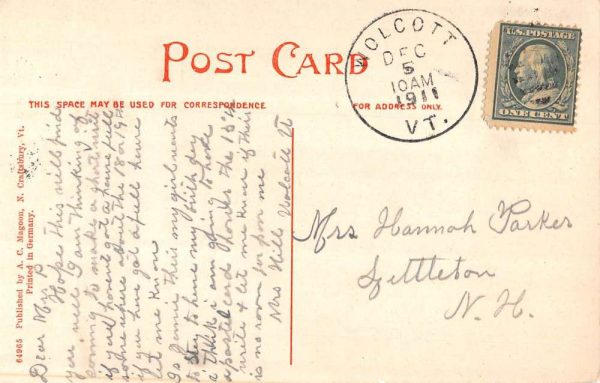 POST CARD
WOLCOTT
DEC
5
10AM
1911
VT.
U.S. POSTAGE
ONE CENT
THIS SPACE MAY BE USED FOR CORRESPONDENCE.
FOR ADDRESS ONLY.
64965 Published by A. C. Magoon, N. Craftsbury, Vt.
Printed in Germany.
Dear Mrs P
Hope this will find
you well I am thinking of
coming to make a short visit
if you havent got a house full
somewhere about the 18 or 19th
if you have got a full house
let me know
is my girl wants
to have my birth day
I think i am going to have
a postel card shower the 15th
write & let me know if their
is no room for me
Mrs Hill Wolcott Vt
Mrs Hannah Parker
Littleton
N. H.